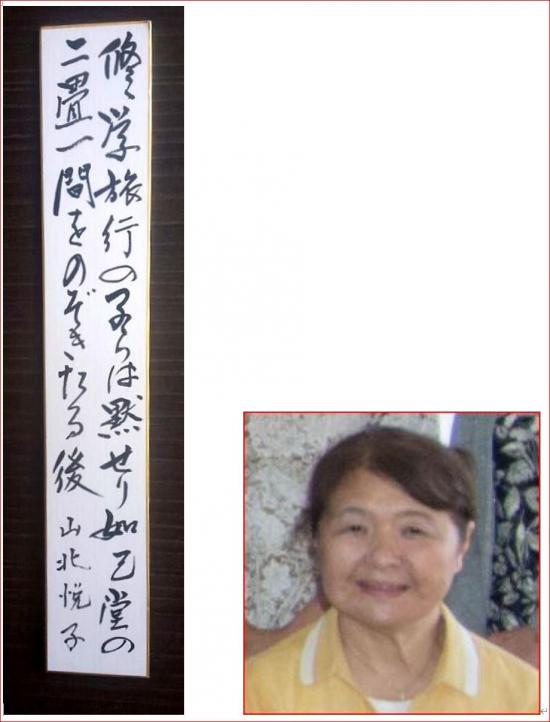 修学旅行の子らは黙せり如己堂の
二畳一間をのぞきたる後
山北悦子